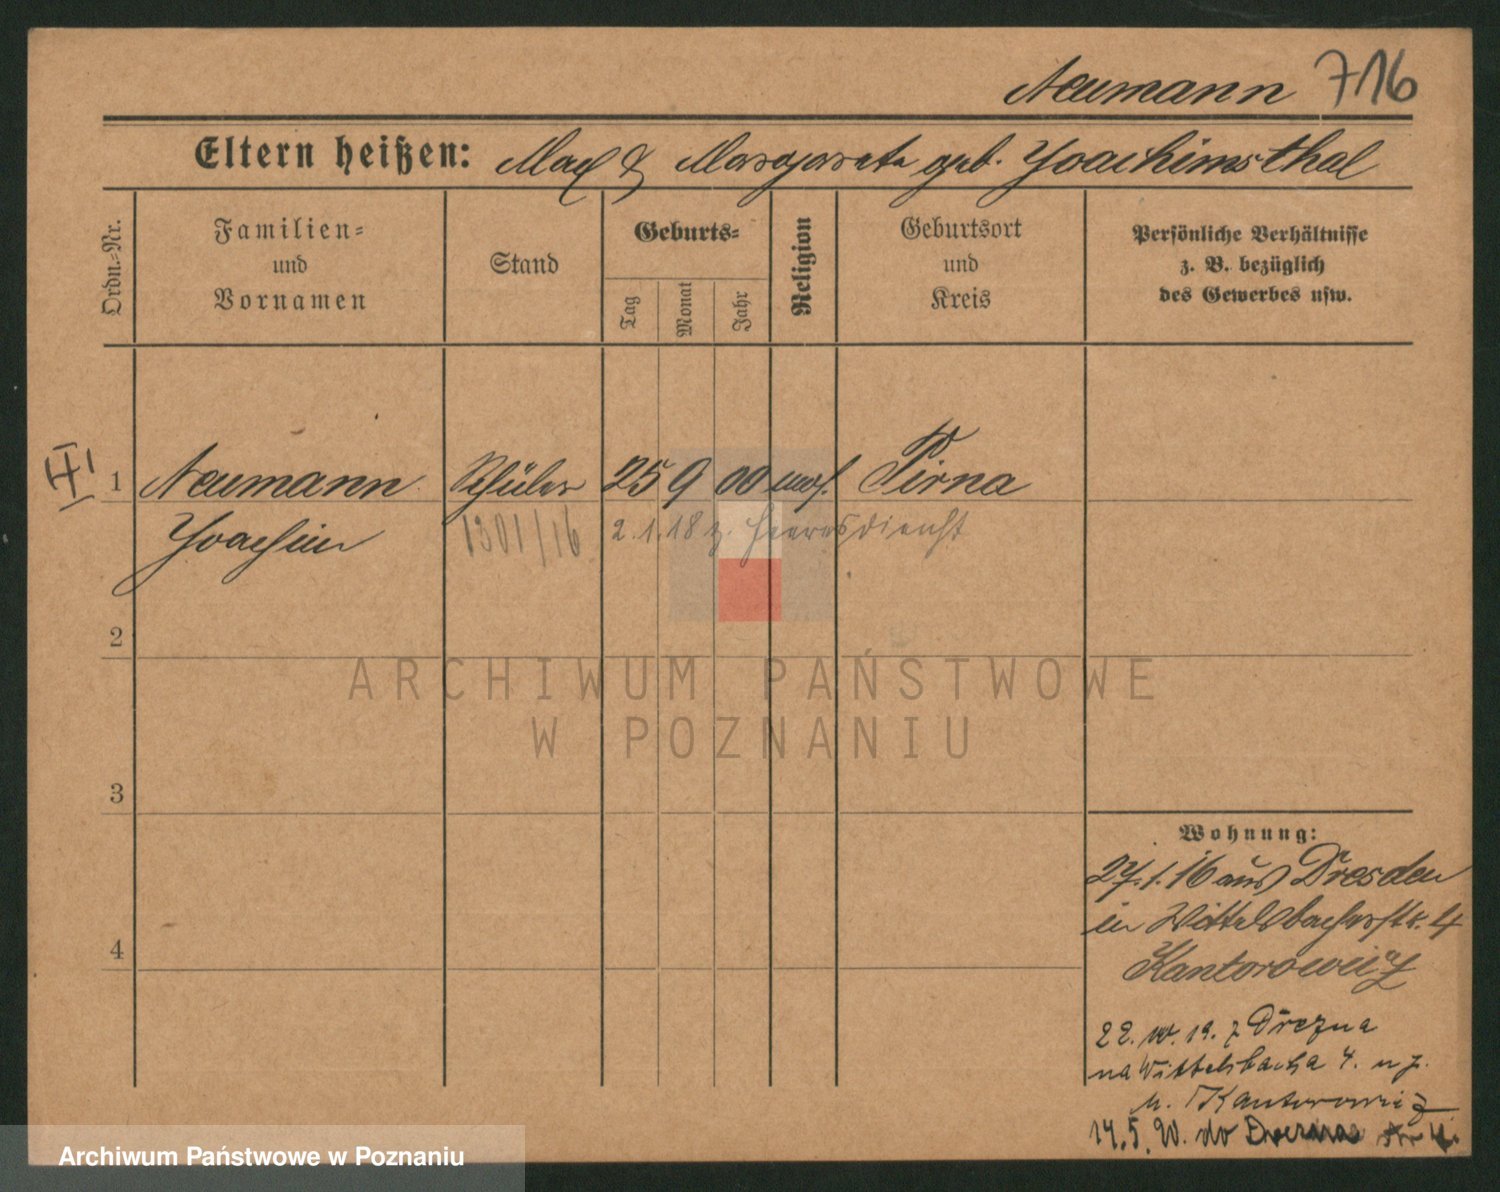 Neumann 716
Eltern heißen: Max & Margarete geb. Joachimsthal
Ordn.-Nr.
Familien-
und
Vornamen
Stand
Geburts-
Tag
Monat
Jahr
Religion
Geburtsort
und
Kreis
Persönliche Verhältnisse
z. B. bezüglich
des Gewerbes usw.
III
1 Neumann Schüler 25 9 00 mos. Pirna
Joachim 1301/16 2.1.18 z. Heeresdienst
2
3
4
Wohnung:
27.1.16 aus Dresden
in Wittelsbacherstr. 4
Kantorowicz
22. 19. z Drezna
na Wittelsbacha 4.
u. Kantorowicz
14.5.20. do Drezna
ARCHIWUM PAŃSTWOWE
W POZNANIU
Archiwum Państwowe w Poznaniu